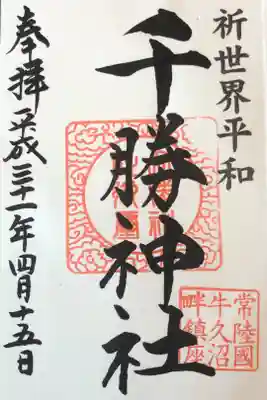 祈世界平和
千勝神社
奉拝平成三十一年四月十五日
常陸國
牛久沼
畔鎮座